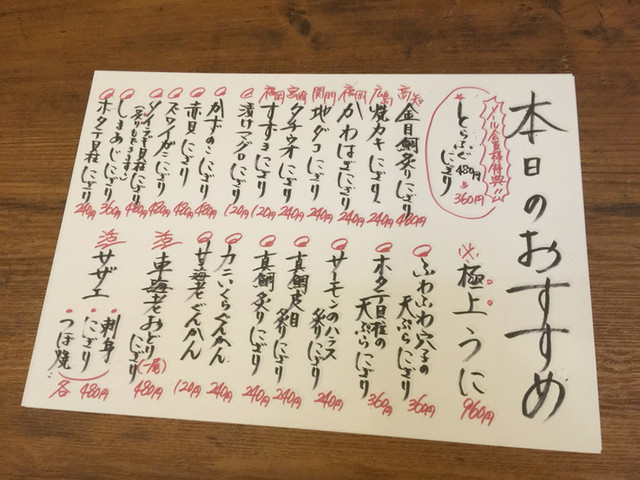 本日のおすすめ
メール会員様特典!!
とらふぐにぎり 480円
360円
高知 金目鯛炙りにぎり 480円
広島 焼カキにぎり 240円
福岡 かわはぎにぎり 240円
関門 地ダコにぎり 240円
宮崎 タチウオにぎり 240円
福岡 すずきにぎり 120円
漬けマグロにぎり 120円
かずのこにぎり 480円
赤貝にぎり 480円
ズワイガニにぎり 480円
タイラギ貝柱にぎり 480円
(炙りもできます)
しまあじにぎり 360円
ホタテ貝柱にぎり 240円
極上うに 960円
ふわふわ穴子の
天ぷらにぎり 360円
ホタテ貝柱の
天ぷらにぎり 360円
サーモンのハラス
炙りにぎり 240円
真鯛皮目
炙りにぎり 240円
真鯛炙りにぎり 240円
カニいくらぐんかん 240円
甘海老ぐんかん 120円
活 車海老おどり
にぎり (一尾) 480円
活 サザエ
刺身
にぎり
つぼ焼
各 480円